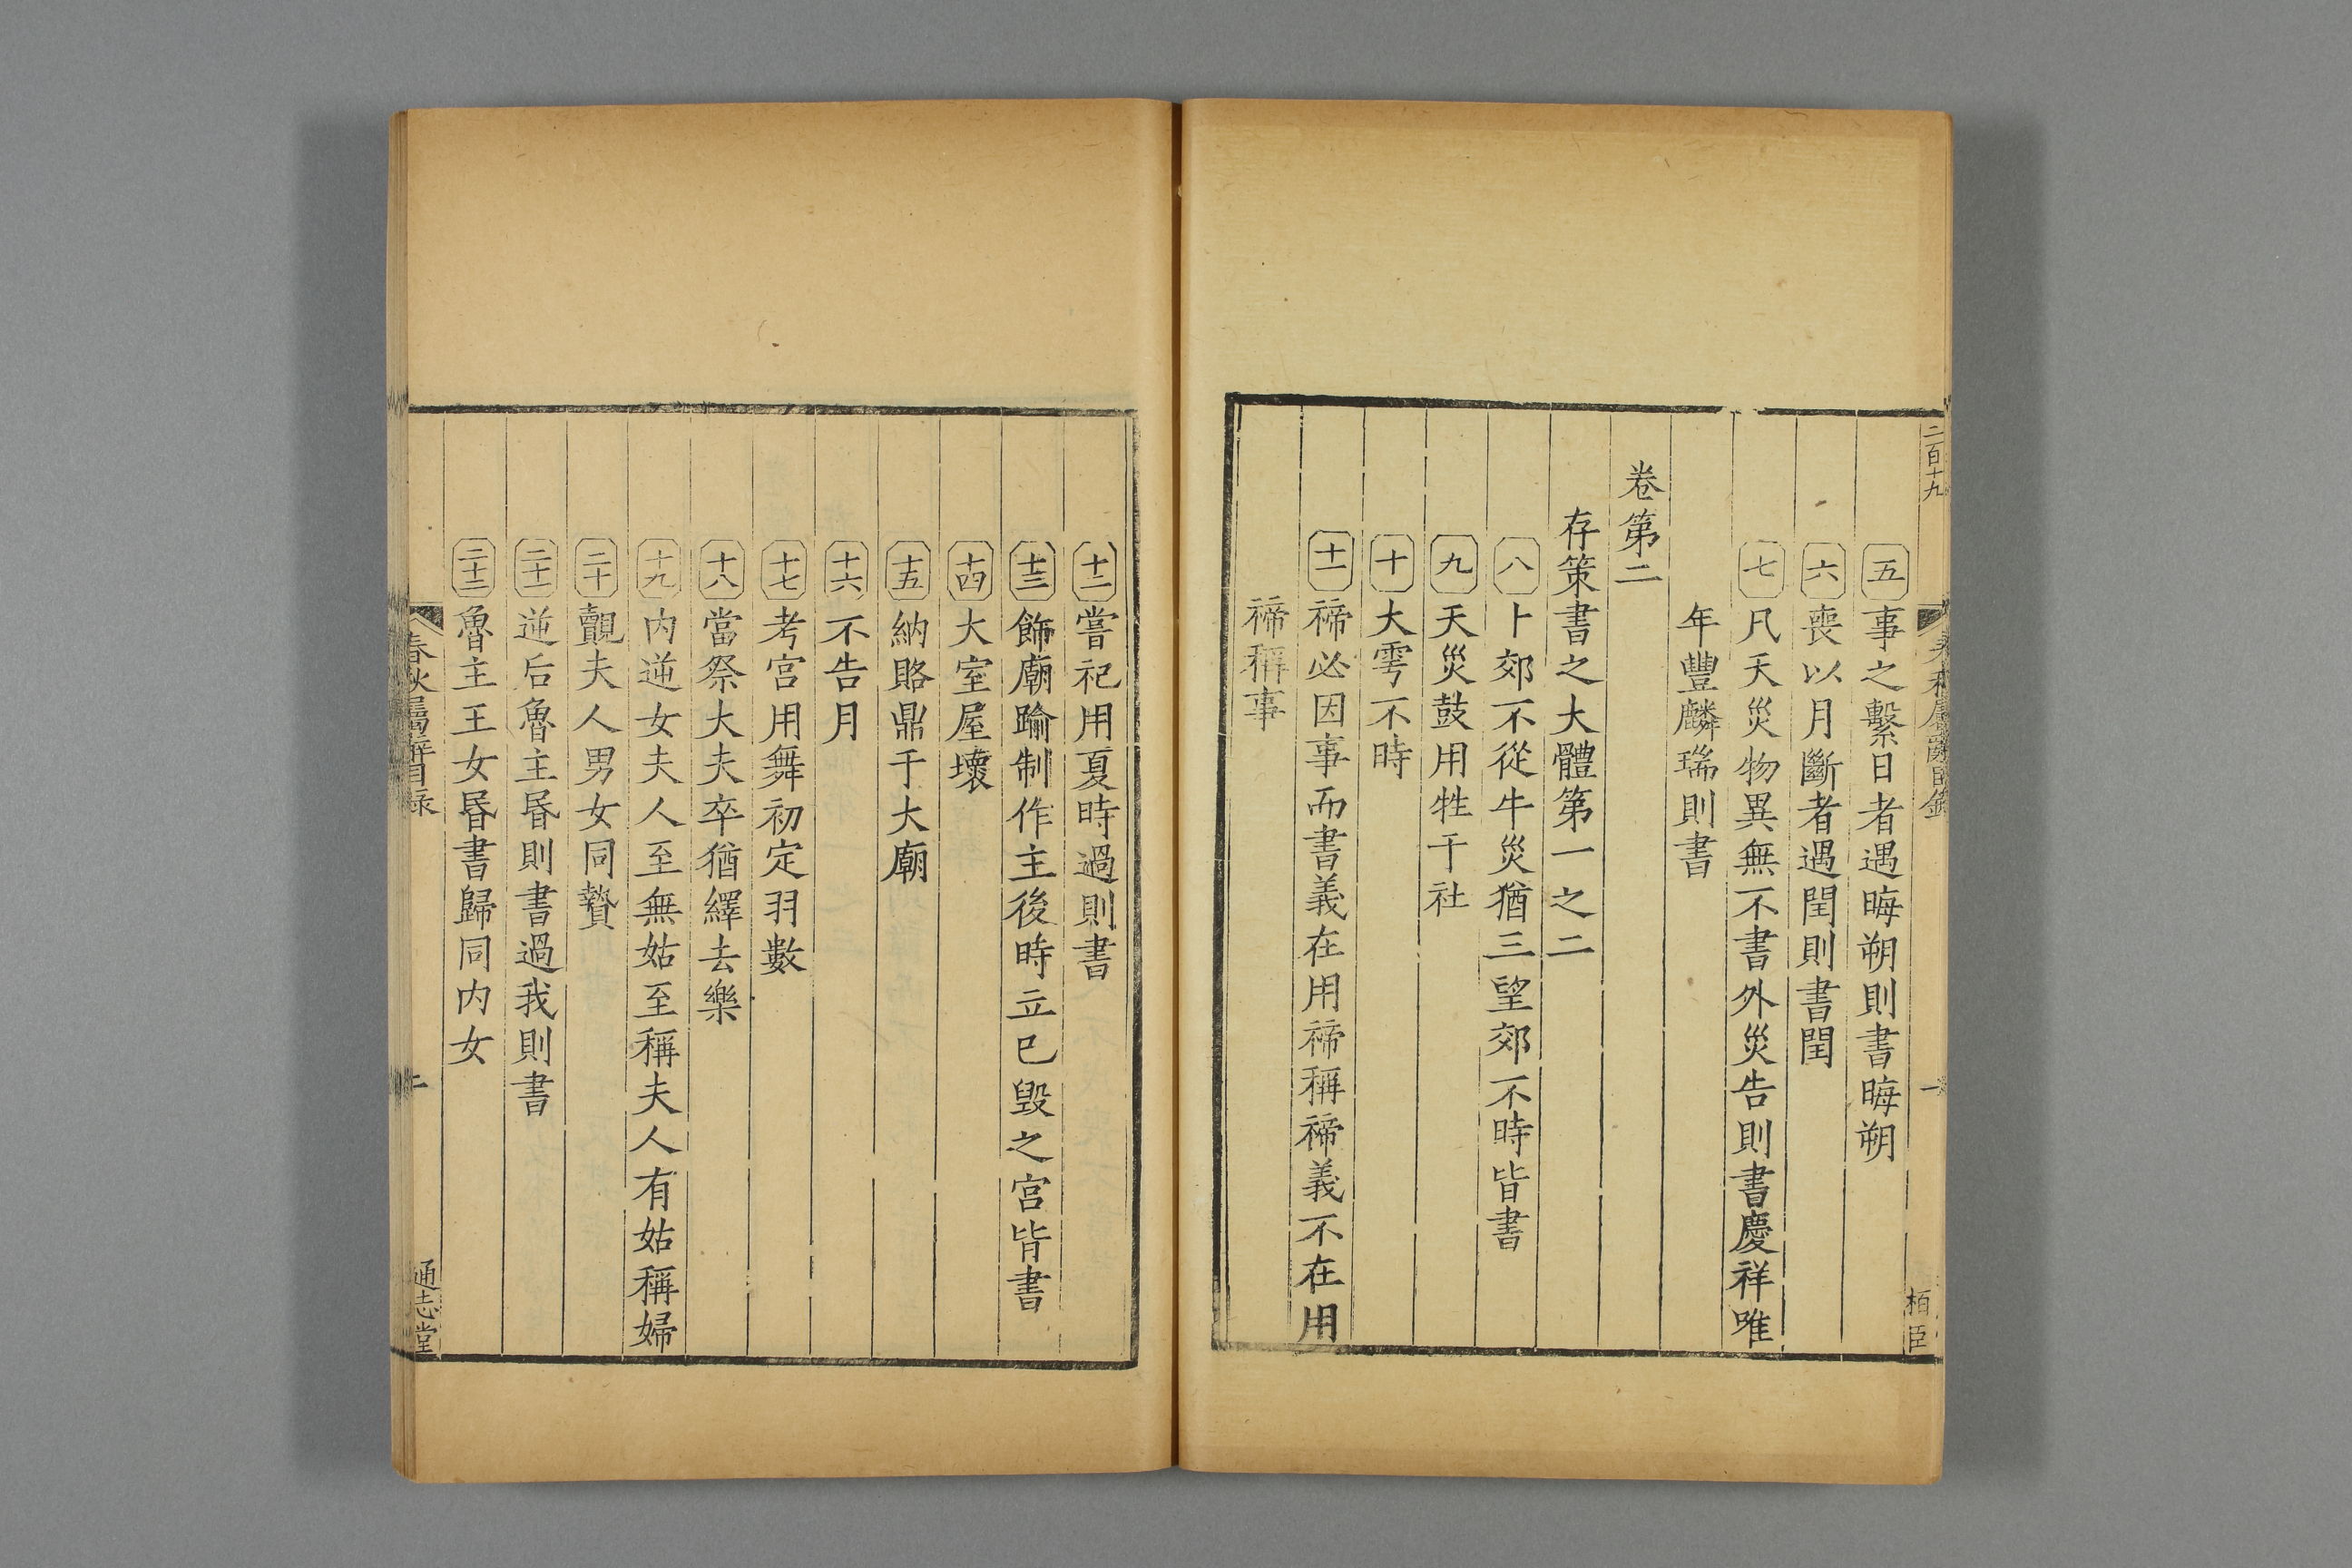 二百十九
春秋屬辭目錄
一
栢臣
五 事之繫日者遇晦朔則書晦朔
六 喪以月斷者遇閏則書閏
七 凡天災物異無不書外災告則書慶祥唯
年豐麟瑞則書
卷第二
存策書之大體第一之二
八 卜郊不從牛災猶三望郊不時皆書
九 天災鼓用牲于社
十 大雩不時
十一 禘必因事而書義在用禘稱禘義不在用
禘稱事
十二 嘗祀用夏時過則書
十三 飾廟踰制作主後時立已毀之宮皆書
十四 大室屋壞
十五 納賂鼎于大廟
十六 不告月
十七 考宮用舞初定羽數
十八 當祭大夫卒猶繹去樂
十九 内逆女夫人至無姑至稱夫人有姑稱婦
二十 覿夫人男女同贄
二十一 逆后魯主昏則書過我則書
二十二 魯主王女昏書歸同内女
春秋屬辭目錄
二
通志堂